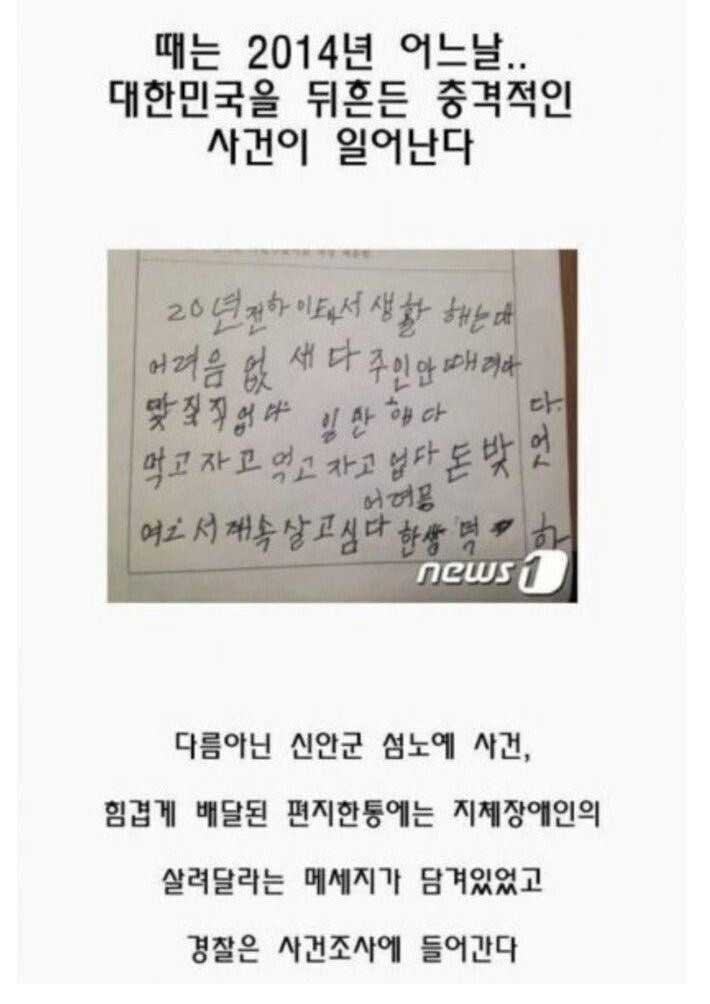 때는 2014년 어느날..
대한민국을 뒤흔든 충격적인
사건이 일어난다
20년전하 이도에서 생활 해는데
어려음 없 새다 주인안 때려다
맟질직 업다 임만 해다
다
먹고 자고 먹고 자고 업다 돈 밪
엇
어려믕
서 재속 살고심다 한쌍 먹
하
news1
다름아닌 신안군 섬노예 사건,
힘겹게 배달된 편지한통에는 지체장애인의
살려달라는 메세지가 담겨있었고
경찰은 사건조사에 들어간다